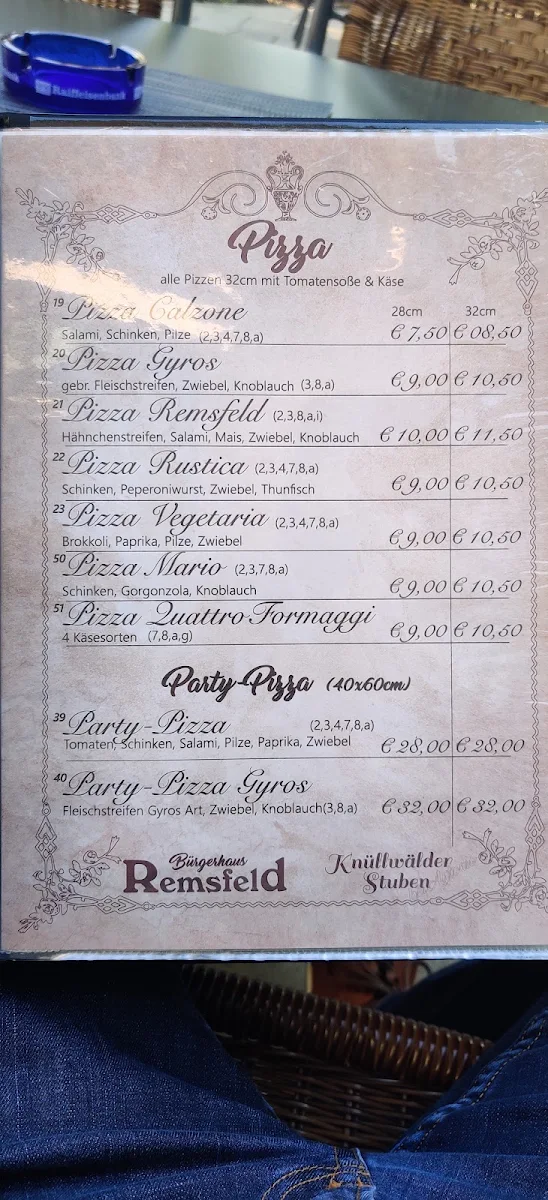 Raiffeisenbank
Pizza
alle Pizzen 32cm mit Tomatensoße & Käse
28cm 32cm
19 Pizza Calzone
Salami, Schinken, Pilze (2,3,4,7,8,a) € 7,50 € 08,50
20 Pizza Gyros
gebr. Fleischstreifen, Zwiebel, Knoblauch (3,8,a) € 9,00 € 10,50
21 Pizza Remsfeld (2,3,8,a,i)
Hähnchenstreifen, Salami, Mais, Zwiebel, Knoblauch € 10,00 € 11,50
22 Pizza Rustica (2,3,4,7,8,a)
Schinken, Peperoniwurst, Zwiebel, Thunfisch € 9,00 € 10,50
23 Pizza Vegetaria (2,3,4,7,8,a)
Brokkoli, Paprika, Pilze, Zwiebel € 9,00 € 10,50
50 Pizza Mario (2,3,7,8,a)
Schinken, Gorgonzola, Knoblauch € 9,00 € 10,50
51 Pizza Quattro Formaggi
4 Käsesorten (7,8,a,g) € 9,00 € 10,50
Party-Pizza (40x60cm)
39 Party-Pizza (2,3,4,7,8,a)
Tomaten, Schinken, Salami, Pilze, Paprika, Zwiebel € 28,00 € 28,00
40 Party-Pizza Gyros
Fleischstreifen Gyros Art, Zwiebel, Knoblauch(3,8,a) € 32,00 € 32,00
Bürgerhaus
Remsfeld
Knüllwälder
Stuben